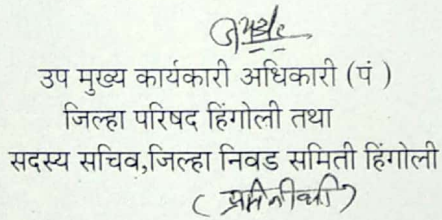 उप मुख्य कार्यकारी अधिकारी (पं )
जिल्हा परिषद हिंगोली तथा
सदस्य सचिव,जिल्हा निवड समिती हिंगोली